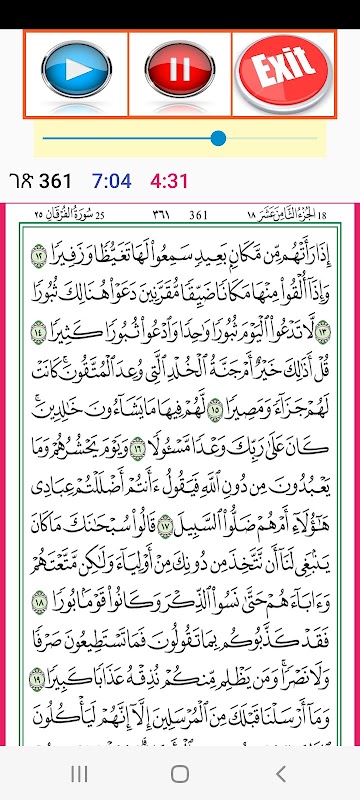 Exit
ገጽ 361 7:04 4:31
25 سُورَةُ الْفُرْقَان ٢٥ ٣٦١ 361 الجُزْءُ الثَّامِنَ عَشَرَ ١٨ 18
إِذَا رَأَتْهُم مِّن مَّكَانٍۭ بَعِيدٍ سَمِعُوا۟ لَهَا تَغَيُّظًا وَزَفِيرًا ١٢
وَإِذَآ أُلْقُوا۟ مِنْهَا مَكَانًا ضَيِّقًا مُّقَرَّنِينَ دَعَوْا۟ هُنَالِكَ ثُبُورًا
١٣ لَّا تَدْعُوا۟ ٱلْيَوْمَ ثُبُورًا وَٰحِدًا وَٱدْعُوا۟ ثُبُورًا كَثِيرًا ١٤
قُلْ أَذَٰلِكَ خَيْرٌ أَمْ جَنَّةُ ٱلْخُلْدِ ٱلَّتِى وُعِدَ ٱلْمُتَّقُونَ ۚ كَانَتْ
لَهُمْ جَزَآءً وَمَصِيرًا ١٥ لَّهُمْ فِيهَا مَا يَشَآءُونَ خَٰلِدِينَ ۚ
كَانَ عَلَىٰ رَبِّكَ وَعْدًا مَّسْـُٔولًا ١٦ وَيَوْمَ يَحْشُرُهُمْ وَمَا
يَعْبُدُونَ مِن دُونِ ٱللَّهِ فَيَقُولُ ءَأَنتُمْ أَضْلَلْتُمْ عِبَادِى
هَٰٓؤُلَآءِ أَمْ هُمْ ضَلُّوا۟ ٱلسَّبِيلَ ١٧ قَالُوا۟ سُبْحَٰنَكَ مَا كَانَ
يَنۢبَغِى لَنَآ أَن نَّتَّخِذَ مِن دُونِكَ مِنْ أَوْلِيَآءَ وَلَٰكِن مَّتَّعْتَهُمْ
وَءَابَآءَهُمْ حَتَّىٰ نَسُوا۟ ٱلذِّكْرَ وَكَانُوا۟ قَوْمًۢا بُورًا ١٨
فَقَدْ كَذَّبُوكُم بِمَا تَقُولُونَ فَمَا تَسْتَطِيعُونَ صَرْفًا
وَلَا نَصْرًا ۚ وَمَن يَظْلِم مِّنكُمْ نُذِقْهُ عَذَابًا كَبِيرًا ١٩
وَمَآ أَرْسَلْنَا قَبْلَكَ مِنَ ٱلْمُرْسَلِينَ إِلَّآ إِنَّهُمْ لَيَأْكُلُونَ